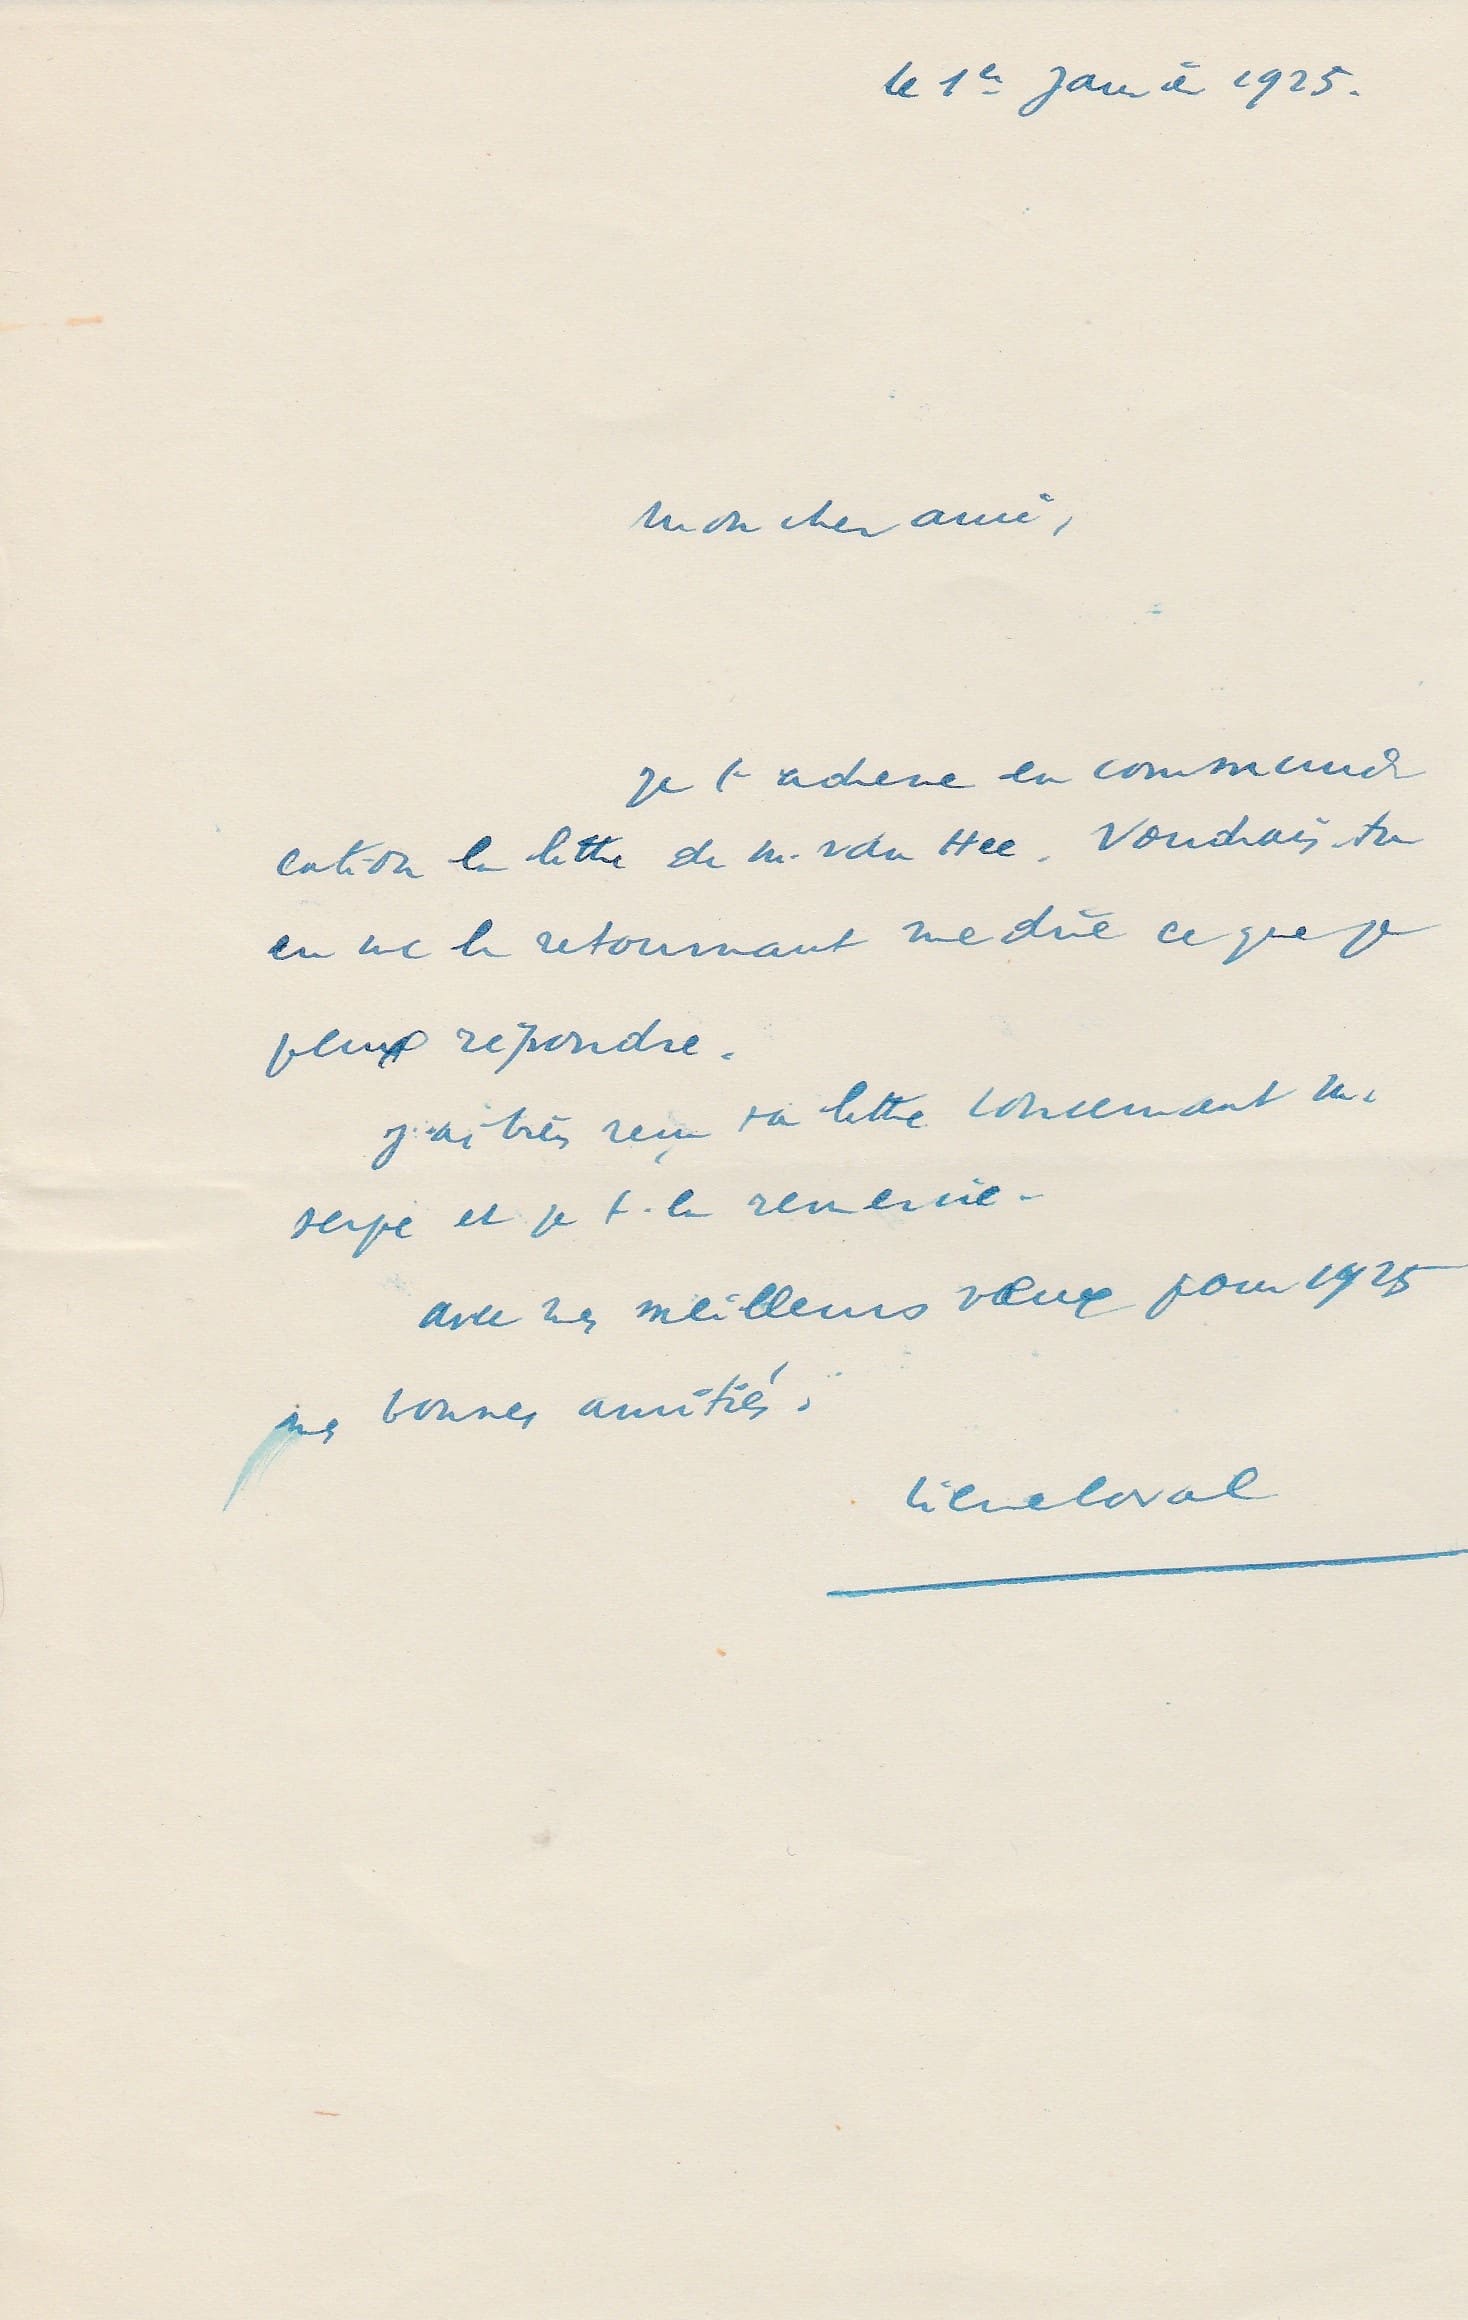 le 1er Janvier 1925.
mon cher ami,
je t'adresse en communi
cation la lettre de M. van Hee. Voudrais-tu
en me la retournant me dire ce que je
peux répondre.
j'ai bien reçu ta lettre concernant M.
serpe et je t'en remercie.
avec mes meilleurs vœux pour 1925
mes bonnes amitiés.